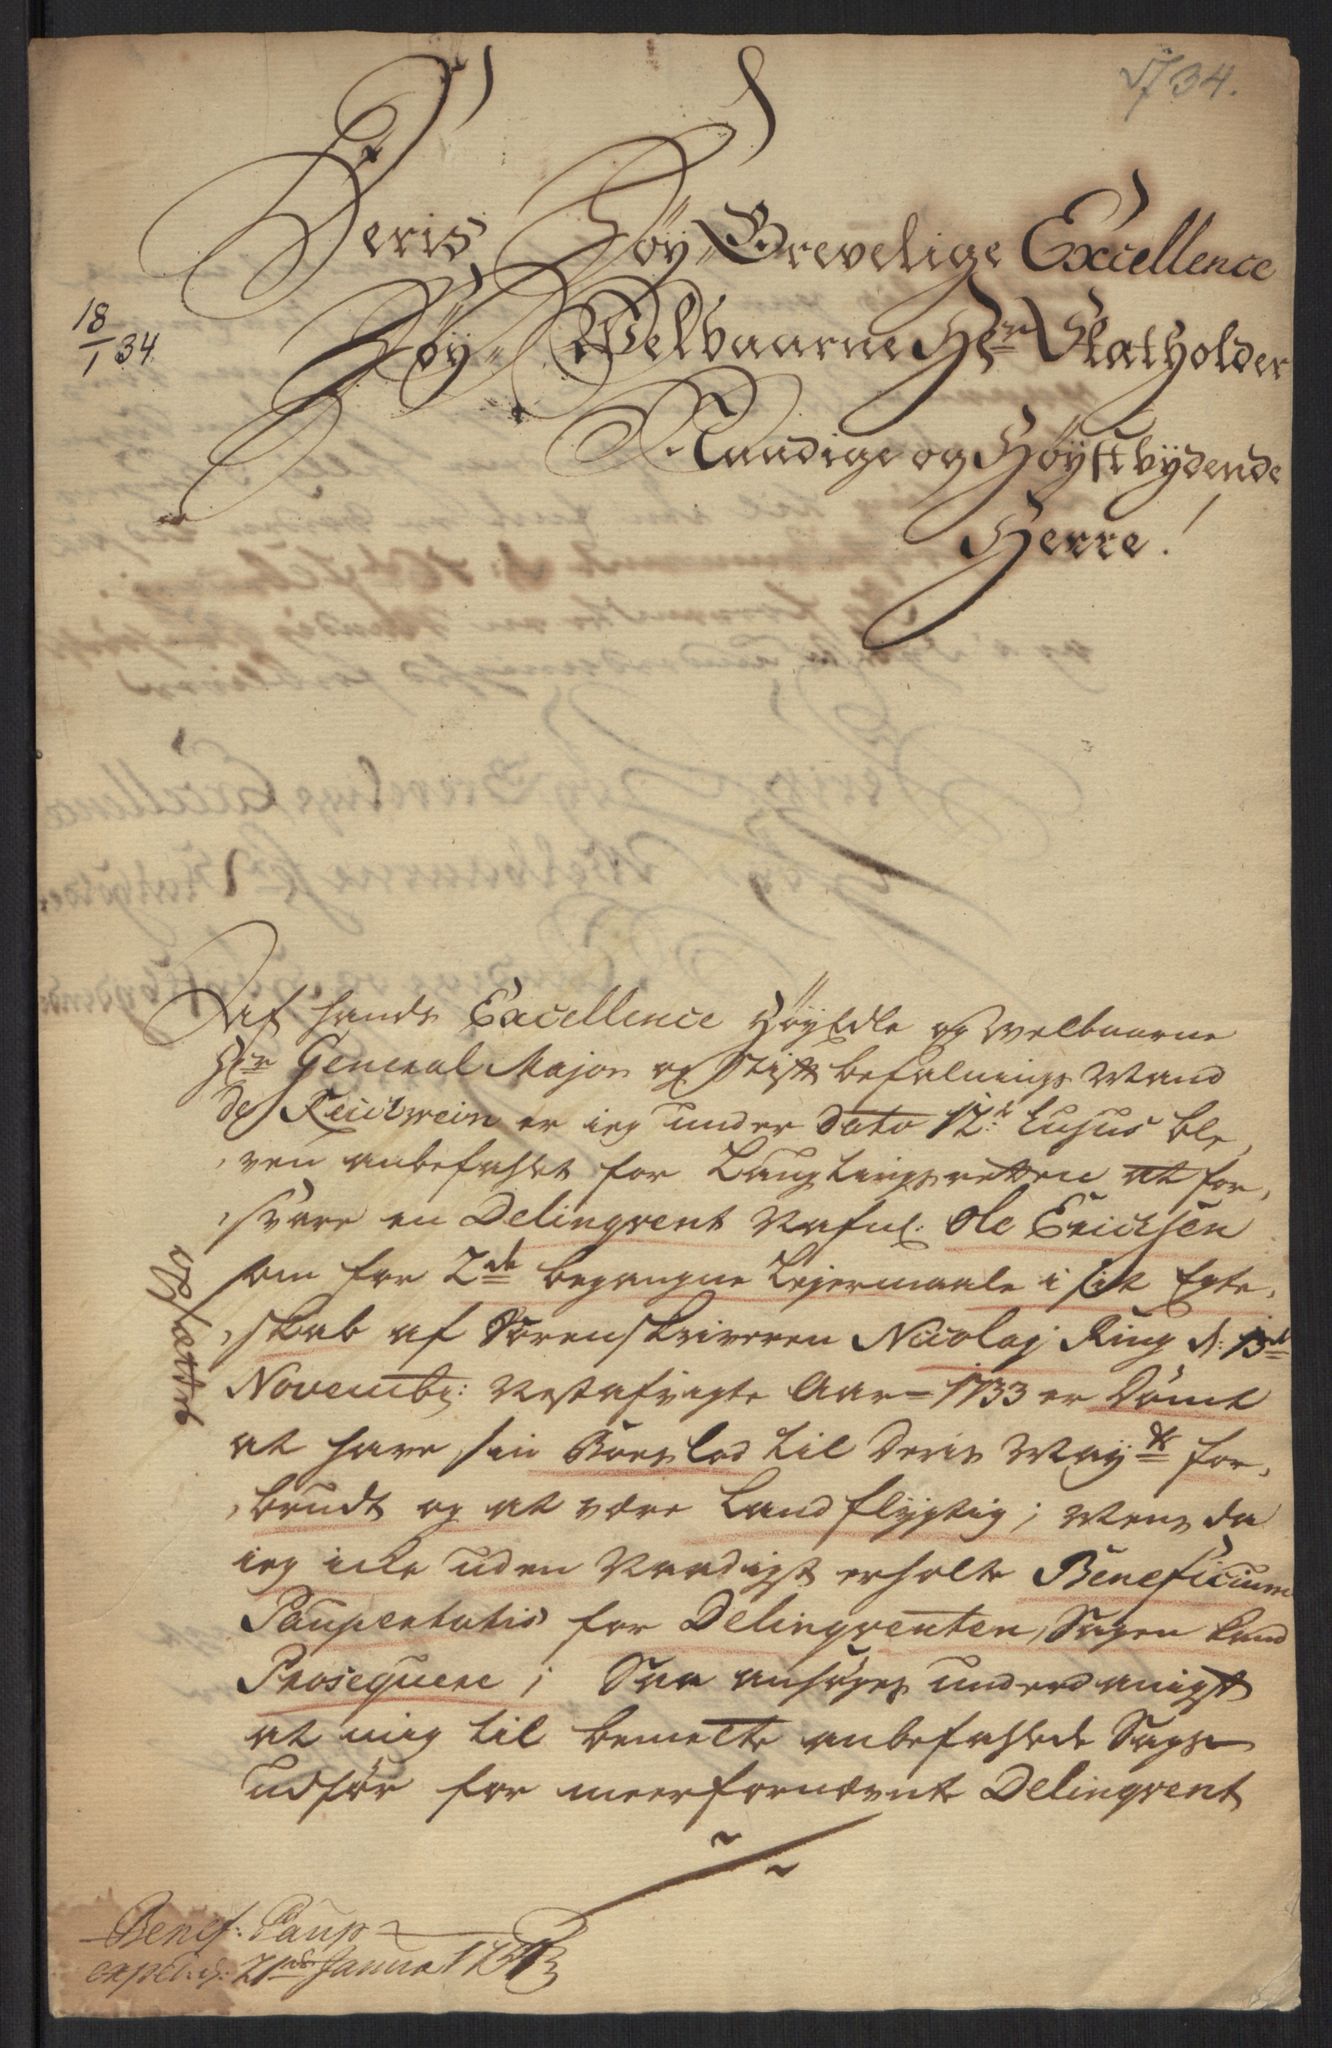 1734.
Deris Höÿ Grevelige Excellence
18/1 34.
Höÿ Welbaarne Hr Statholder
Naadige og Höÿstbÿdende
Herre!
Af hands Excellence Höyædle og Velbaarne
Hr General Major og Stift befalnings Mand
De Reichwein er ieg under Dato 12t hujus ble,
,ven anbefahlet for Laugtings retten at for,
,svare en Delinqvent Nafnl. Ole Ericksen
som for 2de begangne Lejermaale i sit Egte,
,skab af Sorenskriveren Nicolaj Ring d: 13de
Novembr: Nestafvigte Aar 1733 er Dömt
at have sin Boeslod til Deris Mayts for,
,brudt og at være Landflygtig; Mens da
ieg icke uden Naadigst erholte Beneficium
Paupertatis for Delinqventen, Sagen kand
Proseqvere; Saa ansöges underdanigst
at mig til bemelte anbefahlede Sags
udför for meerfornævnte Delinqvent
opsættet
Benef: Paup
exped: d: 21de Janua 1734